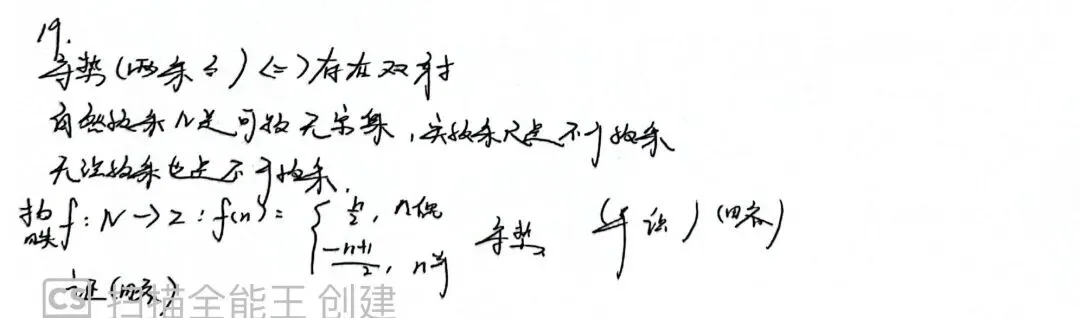 19.
等势(两集合) <=> 存在双射
自然数集N是可数无穷集,实数集R是不可数集
无理数集也是不可数集.
构映 f: N -> Z : f(n) = { n/2, n偶 等势
-n+1/2, n奇
证
CS 扫描全能王 创建